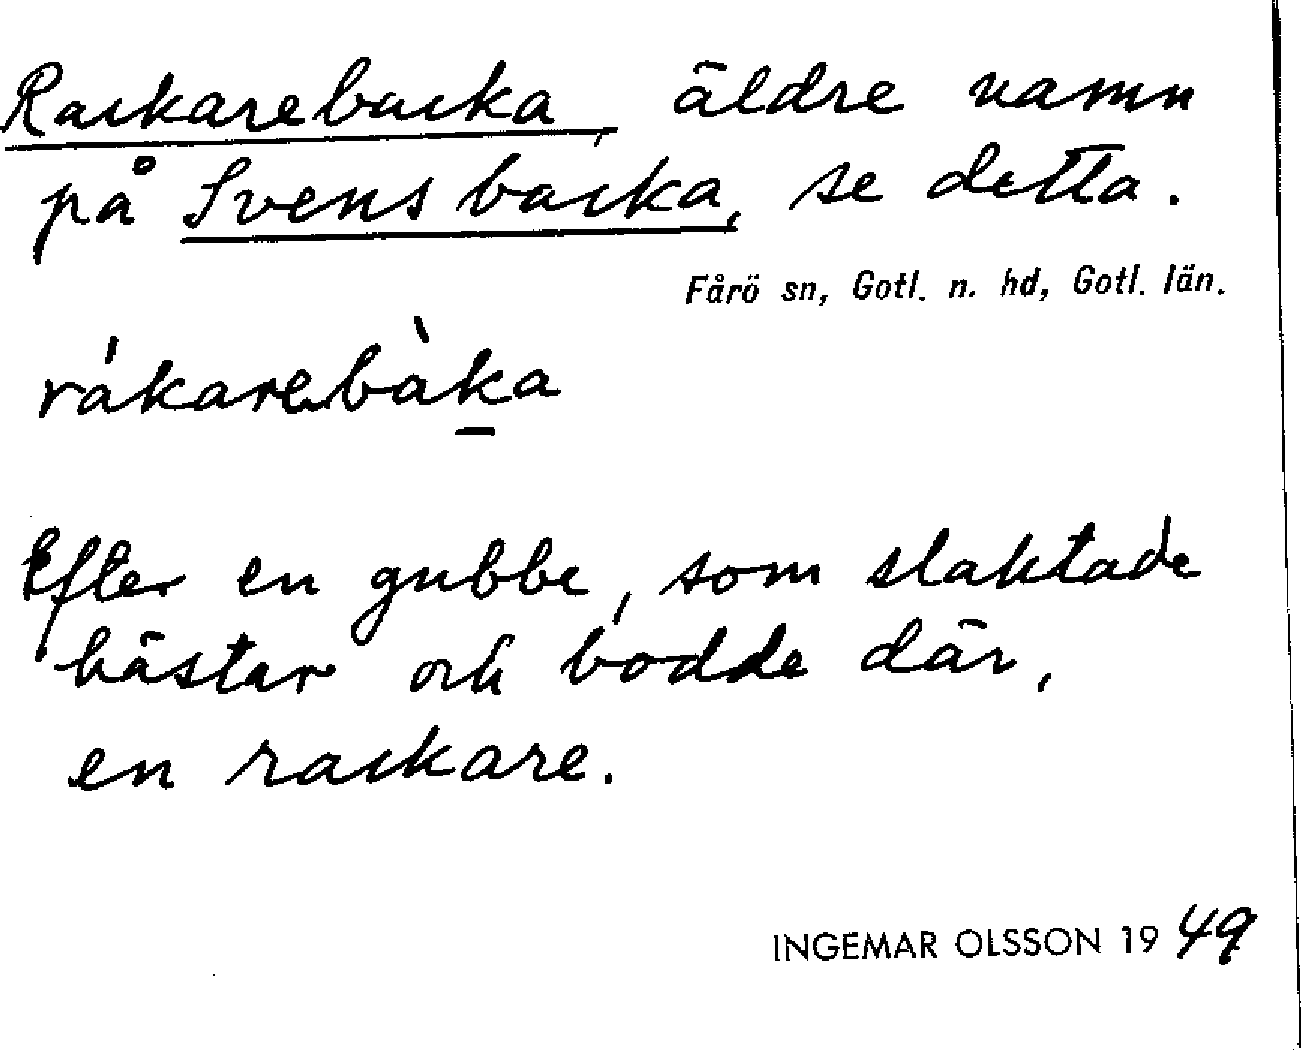 Rackarebacka, äldre namn
på Svensbacka, se detta.
Fårö sn, Gotl. n. hd, Gotl. län.
rákarebàka
Efter en gubbe, som slaktade
hästar och bodde där,
en rackare.
INGEMAR OLSSON 1949